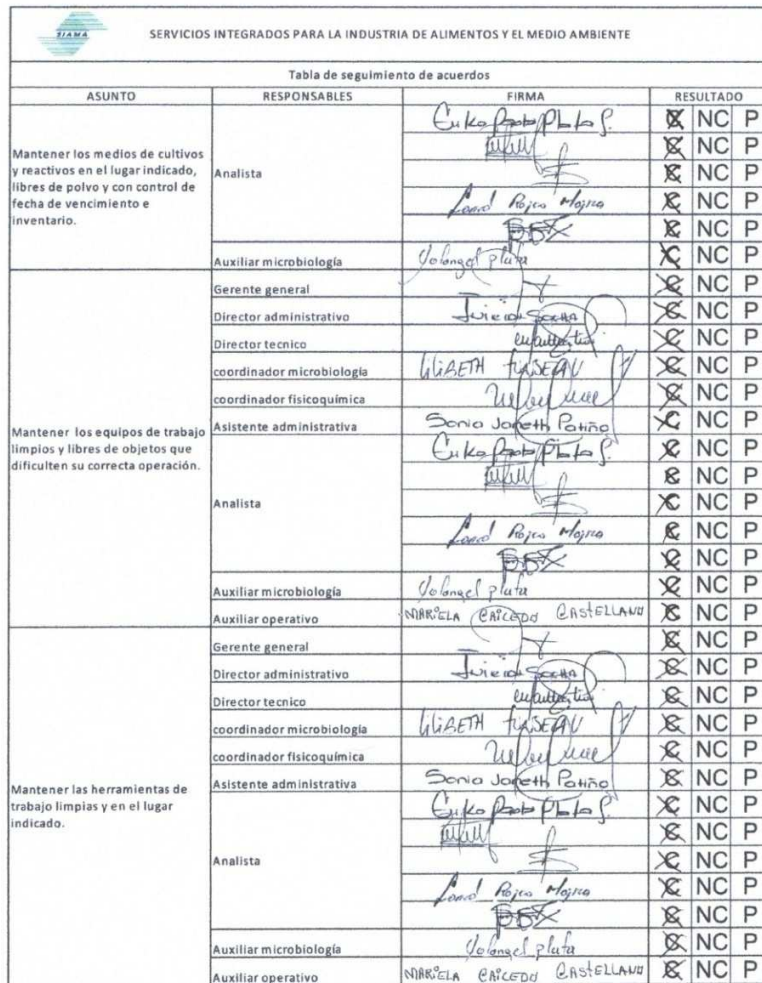 SIAMA
SERVICIOS INTEGRADOS PARA LA INDUSTRIA DE ALIMENTOS Y EL MEDIO AMBIENTE
Tabla de seguimiento de acuerdos
ASUNTO RESPONSABLES FIRMA RESULTADO
Mantener los medios de cultivos
y reactivos en el lugar indicado,
libres de polvo y con control de
fecha de vencimiento e
inventario.
Analista
C NC P
C NC P
C NC P
Rojas Mojica C NC P
C NC P
Auxiliar microbiología Yolangel plata C NC P
Mantener los equipos de trabajo
limpios y libres de objetos que
dificulten su correcta operación.
Gerente general C NC P
Director administrativo C NC P
Director tecnico C NC P
coordinador microbiología LILIBETH C NC P
coordinador fisicoquímica C NC P
Asistente administrativa Sonia Janeth Patiño C NC P
Analista
C NC P
C NC P
C NC P
Rojas Mojica C NC P
C NC P
Auxiliar microbiología Yolangel plata C NC P
Auxiliar operativo MARIELA CAICEDO CASTELLANO C NC P
Mantener las herramientas de
trabajo limpias y en el lugar
indicado.
Gerente general C NC P
Director administrativo C NC P
Director tecnico C NC P
coordinador microbiología LILIBETH C NC P
coordinador fisicoquímica C NC P
Asistente administrativa Sonia Janeth Patiño C NC P
Analista
C NC P
C NC P
C NC P
Rojas Mojica C NC P
C NC P
Auxiliar microbiología Yolangel plata C NC P
Auxiliar operativo MARIELA CAICEDO CASTELLANO C NC P